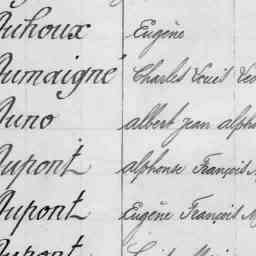 Duhoux Eugène
Dumaigne Charles Louis
Duno albert jean alpho
Dupont alphonse François
Dupont Eugène François
Dupont